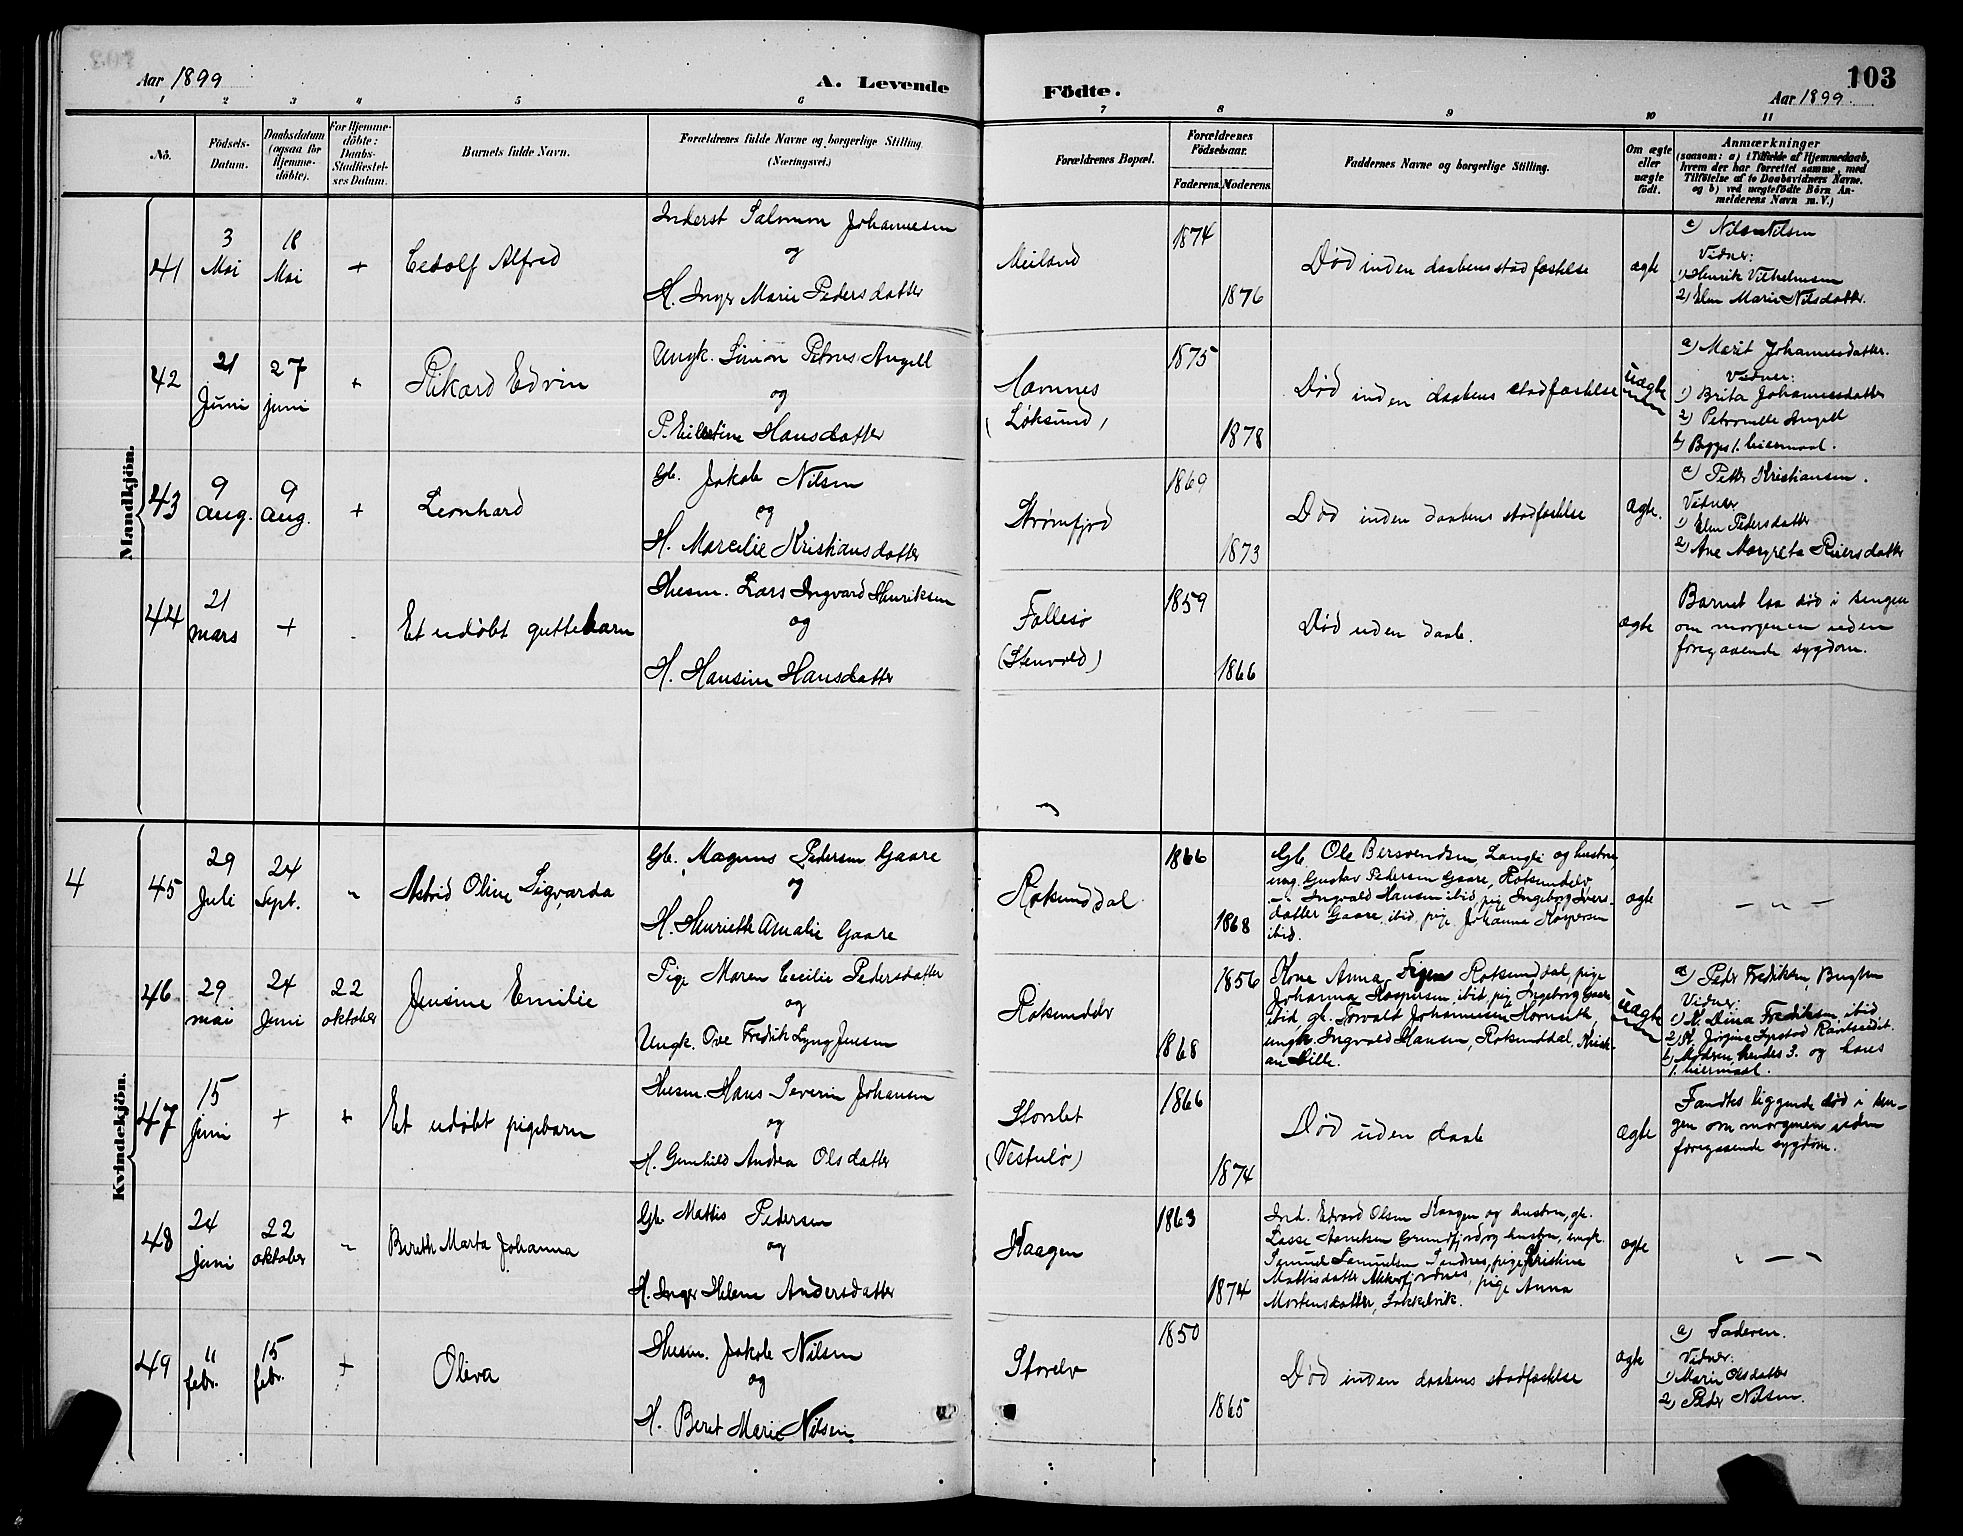 Aar 1899
A. Levende
Födte.
103
Aar 1899.
1 2 3 4 5 6 7 8 9 10 11
No. Födsels-Datum. Daabsdatum (ogsaa for Hjemme-döbte). For Hjemme-döbte: Daabs-Stadfæstel-ses Datum. Barnets fulde Navn. Forældrenes fulde Navne og borgerlige Stilling. (Næringsvei.) Forældrenes Bopæl. Forældrenes Födselsaar. Faderens. Moderens. Faddernes Navne og borgerlige Stilling. Om ægte eller uægte födt. Anmærkninger (saasom: a) i Tilfælde af Hjemmedaab, hvem der har forrettet samme, med Tilföielse af to Daabsvidners Navne, og b) ved uægtefödte Börn An-melderens Navn m. V.)
Mandkjön.
41
3 Mai
18 Mai
+
Cedolf Alfred
Inderst Salomon Johannesen
og
H. Inger Marie Pedersdatter
Meiland
1874
1876
Død inden daabens stadfæstelse
ægte
a) Nils Nilsen
Vidner:
1) Henrik Vilhelmsen
2) Elen Marie Nilsdatter.
42
21 Juni
27 juni
+
Rikard Edvin
Ungk. Simon Petrus Angell
og
P. Eilertine Hansdatter
Havnnes
(Løksund)
1875
1878
Død inden daabens stadfæstelse
uægte
a) Marit Johannesdatter.
Vidner:
1) Brita Johannesdatter
2) Petronelle Angell
b) Begges 1. leiermaal.
43
9 aug.
9 aug.
+
Leonhard
Gb. Jakob Nilsen
og
H. Marcelie Kristiansdatter
Strømfjord
1869
1873
Død inden daabens stadfæstelse
ægte.
a) Peder Kristiansen.
Vidner
1) Elen Pedersdatter
2) Ane Margreta Reiersdatter
44
21 mars
+
Et udøbt guttebarn
Husm. Lars Ingvard Henriksen
og
H. Hansine Hansdatter
Follesø
(Stenvold)
1859
1866
Død uden daab.
ægte
Barnet laa død i sengen
om morgenen uden
foregaaende sygdom.
Kvindekjön.
4
45
29 Juli
24 Sept.
"
Astrid Oline Sigvarda
Gb. Magnus Pedersen Gaare
og
H. Henriette Amalie Gaare
Rotsunddal
1866
1868
Gb. Ole Bersvendsen, Langli og hustru,
ung. Gustav Pedersen Gaare, Rotsundelv
-"- Ingvald Hansen ibid, pig Ingeborg Ivers-
datter Gaare, ibid, pige Johanna Kaspersen
ibid.
ægte
- " -
46
29 mai
24 Juni
22 oktober
Jensine Emilie
Pige Maren Cecilie Pedersdatter
og
Ungk. Ove Fredrik Lyng Jensen
Rotsundelv
1856
1868
Kone Anna Rotsunddal, pige
Johanna Kaspersen, ibid, pig Ingeborg Gaare
ibid, gb. Torvald Johannesen Hornseth
ungk. Ingvald Hansen, Rotsunddal, Krist-
an Lille.
uægte
a) Peder Fredriksen, Bugten
Vidner:
1) K. Dina Fredriksen ibid
b) Moderen hendes 3. og hans
1. leiermaal.
47
15 juni
+
+
Et udøbt pigebarn
Husm. Hans Severin Johansen
og
H. Gunhild Andrea Olsdatter
Storslet
1866
1874
Død uden daab
ægte
Fandtes liggende død i sen-
gen om morgenen uden
foregaaende sygdom.
48
24 Juni
22 oktober
"
Bereth Marta Johanna
Gb. Mattis Pedersen
og
H. Inger Helene Andersdatter
Haagen
1863
1874
Ind. Edvard Olsen Kaagen og hustru, gb.
Lasse Grundfjord og hustru, ungk.
Samuel Samuelsen Sandnes, pige Kristine
Mattisdatter Akkarfjordnes, pige Anna
Mortensdatter, Lokkelvik.
ægte
" - "
49
11 febr.
15 febr.
+
Oleva
Husm. Jakob Nilsen
og
H. Beret Marie Nilsen.
Storelv
1850
1865
Død inden daabens stadfæstelse
ægte
a) Faderen.
Vidner:
1) Marie Olsdatter
2) Peder Nilsen.